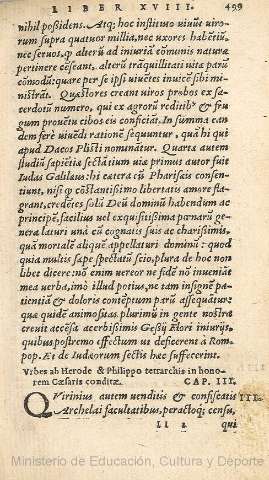 LIBER XVIII. 499
nihil possidens. Atq; hoc instituto uiuũt uiro-
rum supra quatuor millia, nec uxores habẽt, ne-
nec seruos, qᵈ alterũ ad iniuriã cõmunis naturæ
pertinere cẽseant, alterũ trãquillitati uitæ parũ
cõmodũ: quare per se ipsi uiuẽtes inuicẽ sibi mi-
nistrãt. Quæstores creant uiros probos ex sa-
cerdotũ numero, qui ex agrorũ reditib⁹ & fru
gum prouẽtu cibos eis conficiãt. In summa ean
dem ferè uiuẽdi rationẽ sequuntur, quã hi qui
apud Dacos Plisti nominãtur. Quartæ autem
studiũ sapiẽtiæ sectãtium uiæ primus autor fuit
Iudas Galilæus: hi cætera cũ Pharisæis consen-
tiunt, nisi qᵈ cõstantissimo libertatis amore fla-
grant, credẽtes solũ Deũ dominũ habendum ac
principẽ, facilius uel exquisitissima pœnarũ ge-
nera laturi unà cũ cognatis suis ac charissimis,
quã mortalẽ aliquẽ appellaturi dominũ: quod
quia multis sæpe spectatũ scio, plura de hoc non
libet dicere: nõ enim uereor ne fidẽ nõ inueniãt
mea uerba, imò illud potius, ne tam insignẽ pa-
tientiã & doloris contẽptum parũ assequãtur:
quæ quidẽ animositas plurimũ in gente nostra
creuit accẽsa acerbissimis Gesij Flori iniurijs,
quibus postremo effectum ut deficerent à Rom.
pop. Et de Iudæorum sectis hæc suffecerint.
Vrbes ab Herode & Philippo tetrarchis in hono-
rem Cæsaris conditæ. CAP. III.
QVirinius autem uenditis & confiscatis III
Archelai facultatibus, peractoq; censu,
ll 2 qui
Ministerio de Educación, Cultura y Deporte